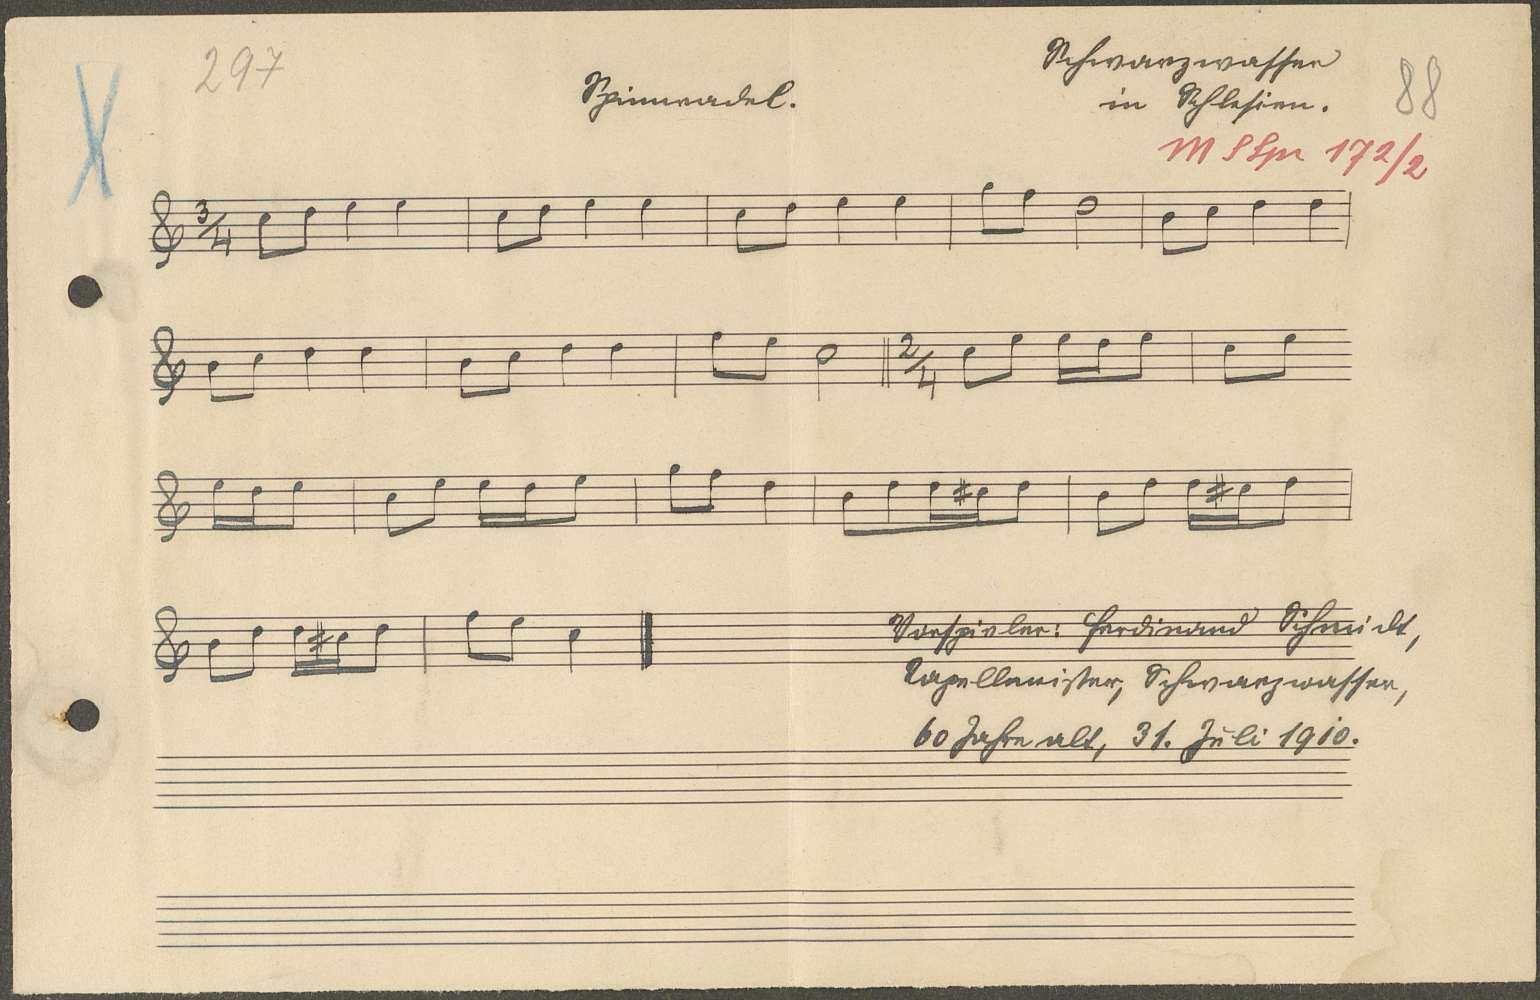 297
Spinnradel.
Schwarzwasser
in Schlesien.
88
3/4
2/4
Vorspieler: Ferdinand Schmidt,
Kapellmeister, Schwarzwasser,
60 Jahre alt, 31. Juli 1910.